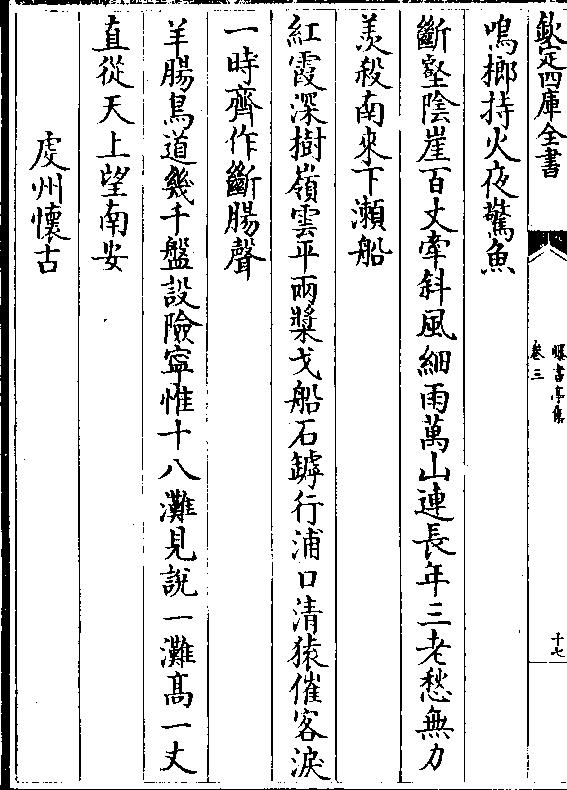 欽定四庫全書
曝書亭集
卷三
十七
鳴榔持火夜驚魚
斷壑陰崖百丈牽斜風細雨萬山連長年三老愁無力
羡殺南來下瀨船
紅霞深樹嶺雲平兩槳戈船石罅行浦口清猿催客淚
一時齊作斷腸聲
羊腸鳥道幾千盤設險寜惟十八灘見說一灘髙一丈
直從天上望南安
虔州懷古